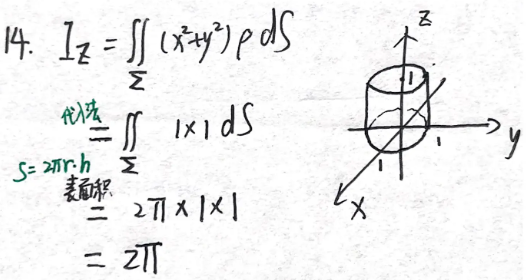 14. I_Z = ∬_Σ (x²+y²) ρ dS
代入法
= ∬_Σ 1×1 dS
S=2πr·h
表面积
= 2π×1×1
= 2π
z
1
y
1
1
x